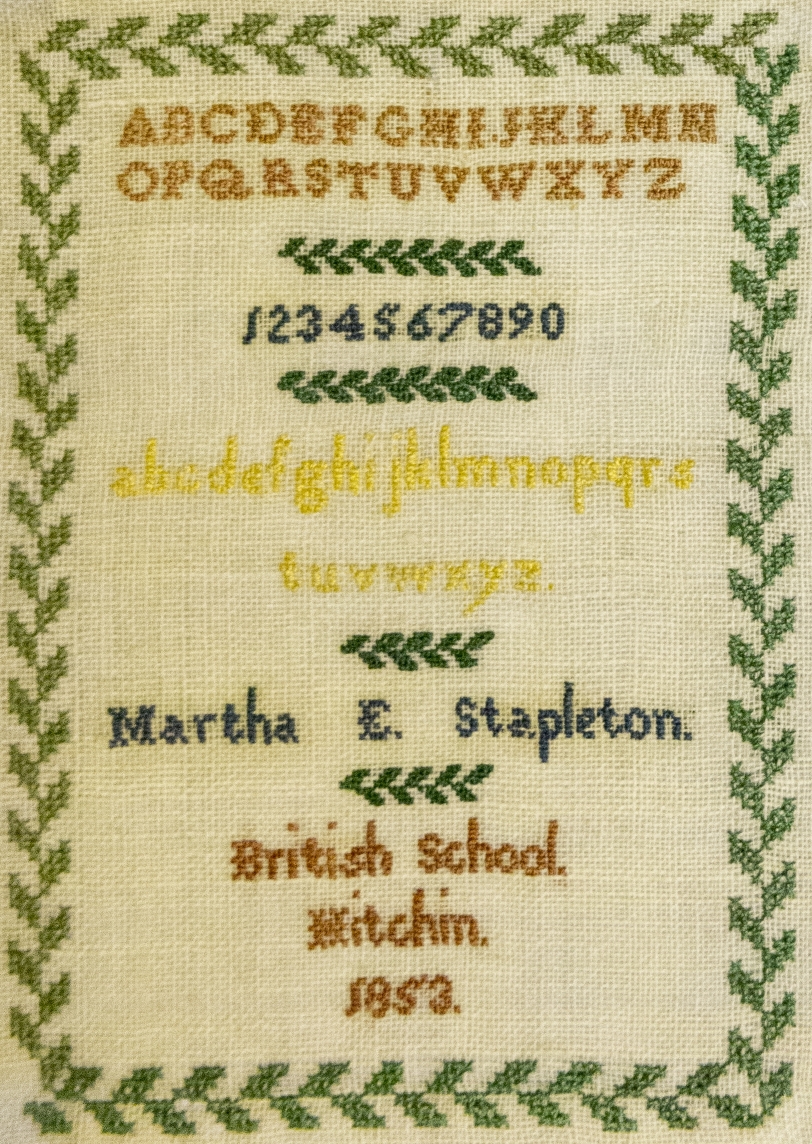 ABCDEFGHIJKLMN
OPQRSTUVWXYZ
1234567890
abcdefghijklmnopqrs
tuvwxyz.
Martha E. Stapleton.
British School.
Hitchin.
1853.